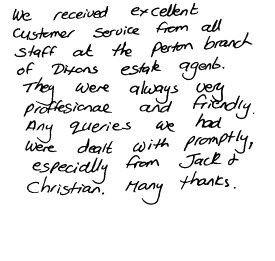 We received excellent
Customer service from all
staff at the Perton branch
of Dixons estate agents.
They were always very
proffesional and friendly.
Any queries we had
were dealt with promptly,
especially from Jack &
Christian. Many thanks.